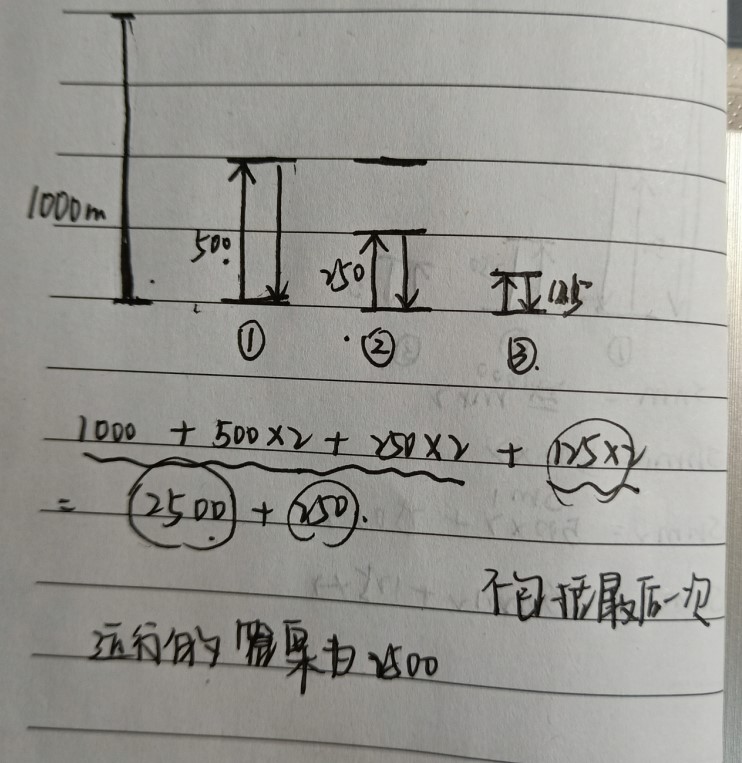 1000m
500
250
125
① ② ③
1000 + 500×2 + 250×2 + 125×2
= 2500 + 250.
不包括最后一次
运行的结果为2500